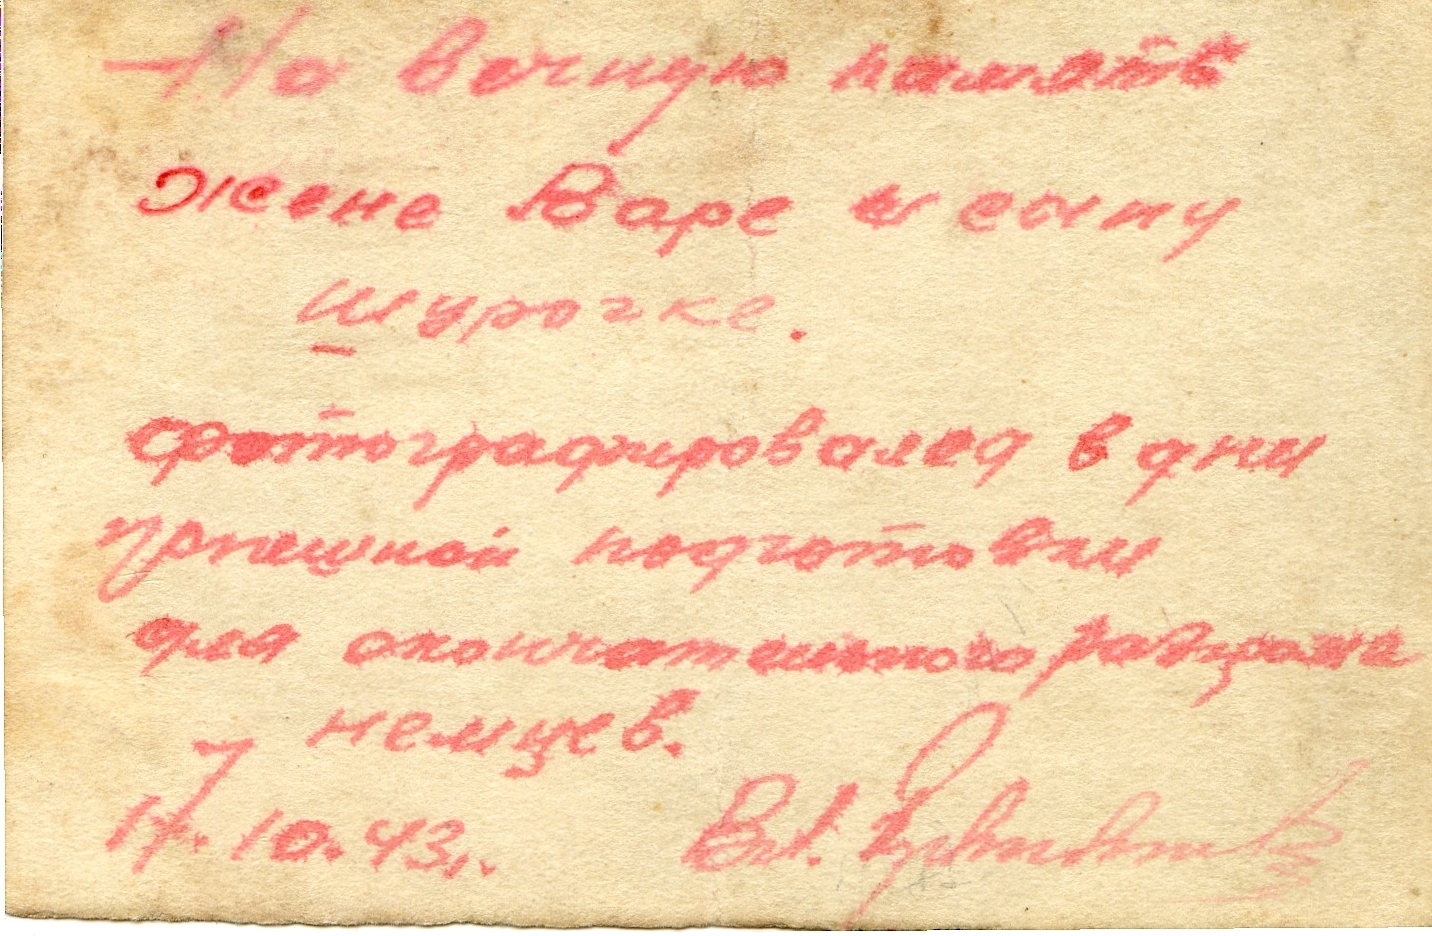 На вечную память
жене Варе и сыну
Шурочке.
фотографировался в дни
успешной подготовки
для окончательного разгрома
немцев.
17.10.43г. Вл.